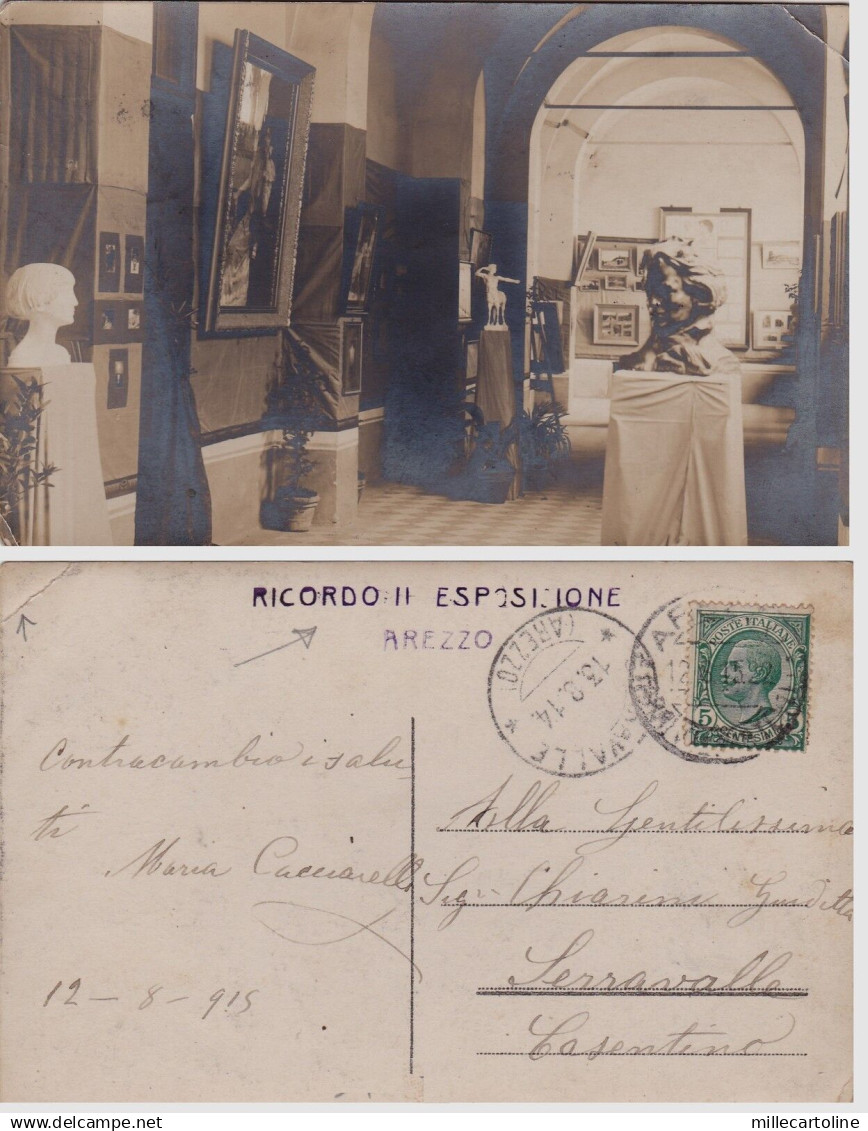 RICORDO II ESPOSIZIONE
AREZZO
(AREZZO)
13.8.14
SERRAVALLE
POSTE ITALIANE
5
CENTESIMI
Contraccambio i salu-
ti
Maria Cacciarelli
12 - 8 - 915
Alla Gentilissima
Sig.na Chiarini Giuditta
Serravalle
Casentino
www.delcampe.net
millecartoline